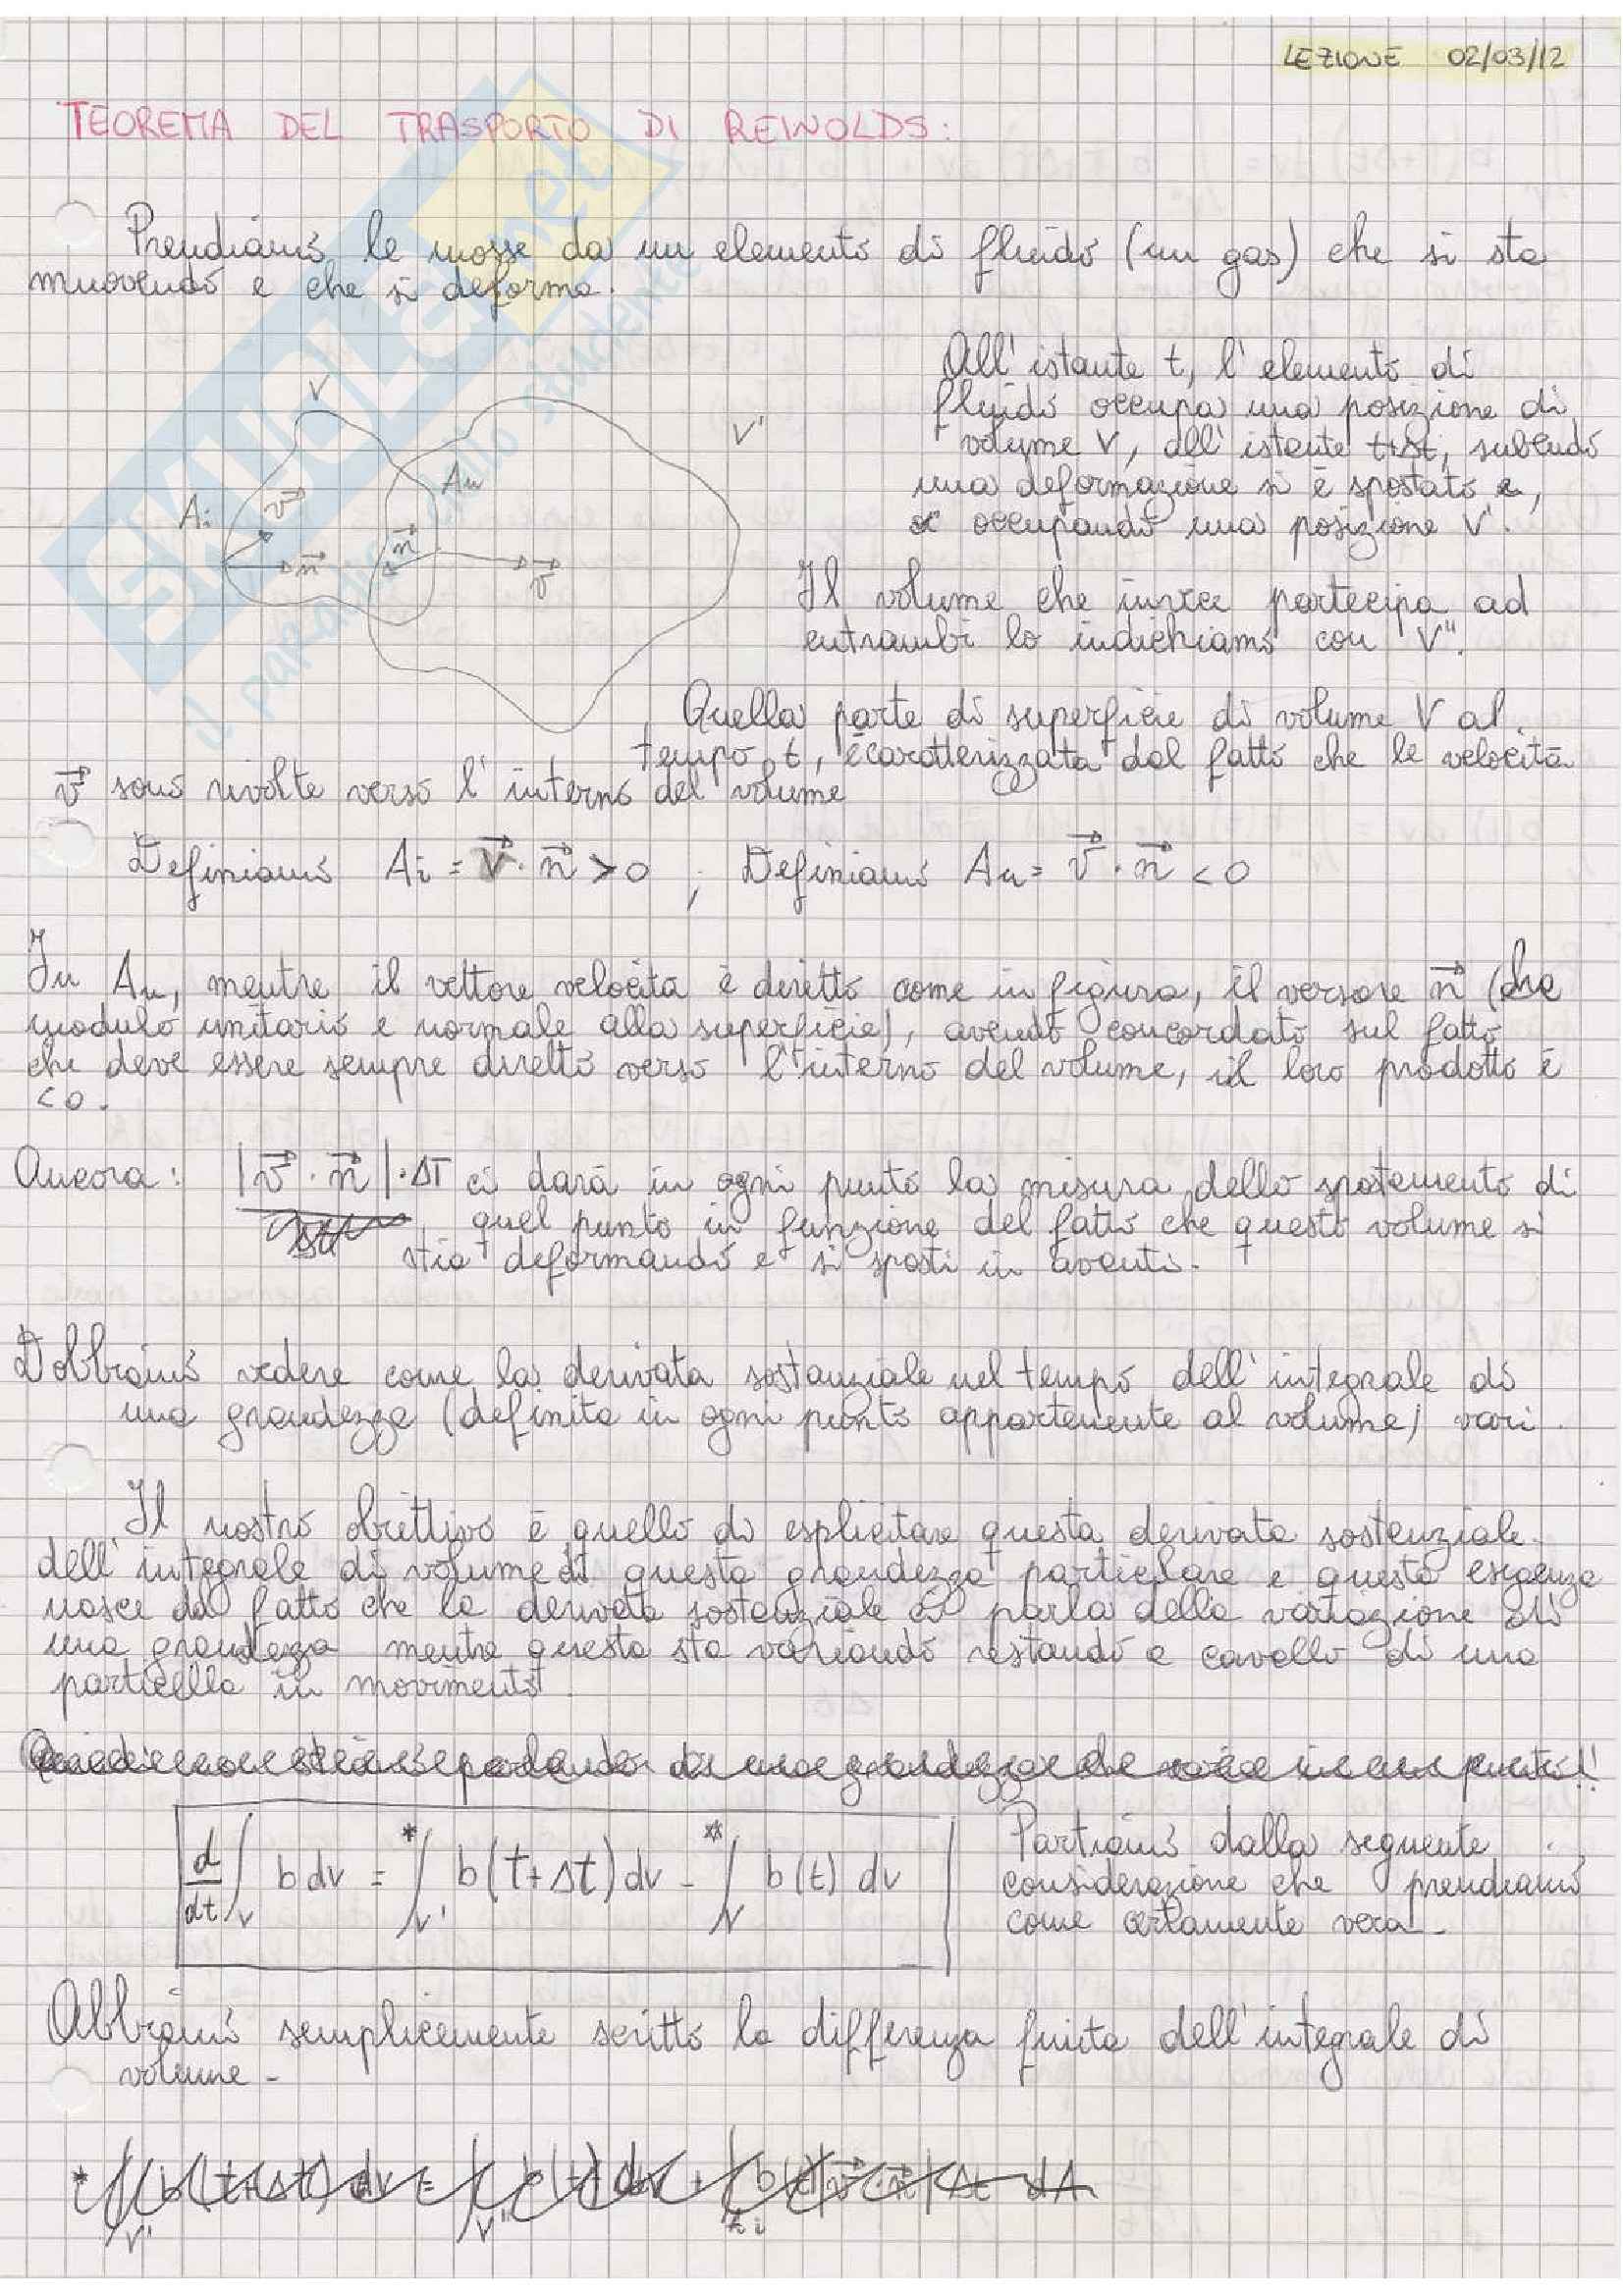 LEZIONE 02/03/12
TEOREMA DEL TRASPORTO DI REINOLDS:
Prendiamo le mosse da un elemento di fluido (un gas) che si sta
muovendo e che si deforma.
All'istante t, l'elemento di
fluido occupa una posizione di
volume V, all'istante t+Δt, subendo
una deformazione si è spostato,
occupando una posizione V'.
V
V'
Au
Ai
v⃗
n⃗
n⃗
v⃗
Il volume che invece partecipa ad
entrambi lo indichiamo con V''.
Quella parte di superficie di volume V al
tempo t, è caratterizzata dal fatto che le velocità
v⃗ sono rivolte verso l'interno del volume
Definiamo Ai = v⃗ · n⃗ > 0 ; Definiamo Au = v⃗ · n⃗ < 0
In Au, mentre il vettore velocità è diretto come in figura, il versore n⃗ (che
modulo unitario e normale alla superficie), avendo concordato sul fatto
che deve essere sempre diretto verso l'interno del volume, il loro prodotto è
<0.
Ancora: |v⃗ · n⃗| · ΔT ci darà in ogni punto la misura dello spostamento di
quel punto in funzione del fatto che questo volume si
stia deformando e si sposti in avanti.
Dobbiamo vedere come la derivata sostanziale nel tempo dell'integrale di
una grandezza (definita in ogni punto appartenente al volume) vari.
Il nostro obiettivo è quello di esplicitare questa derivata sostanziale
dell'integrale di volume di questa grandezza particolare e questa esigenza
nasce dal fatto che la derivata sostanziale ci parla della variazione di
una grandezza mentre questa sta variando restando a cavallo di una
particella in movimento.
d/dt ∫V b dv = *∫V' b(t+Δt) dv - **∫V b(t) dv
Partiamo dalla seguente
considerazione che prendiamo
come certamente vera.
Abbiamo semplicemente scritto la differenza finita dell'integrale di
volume.
* ∫V' b(t+Δt) dv = ∫V'' b(t) dv + ∫Ai b(t)|v⃗·n⃗|Δt dA
SKUOLA.net
il paradiso dello studente